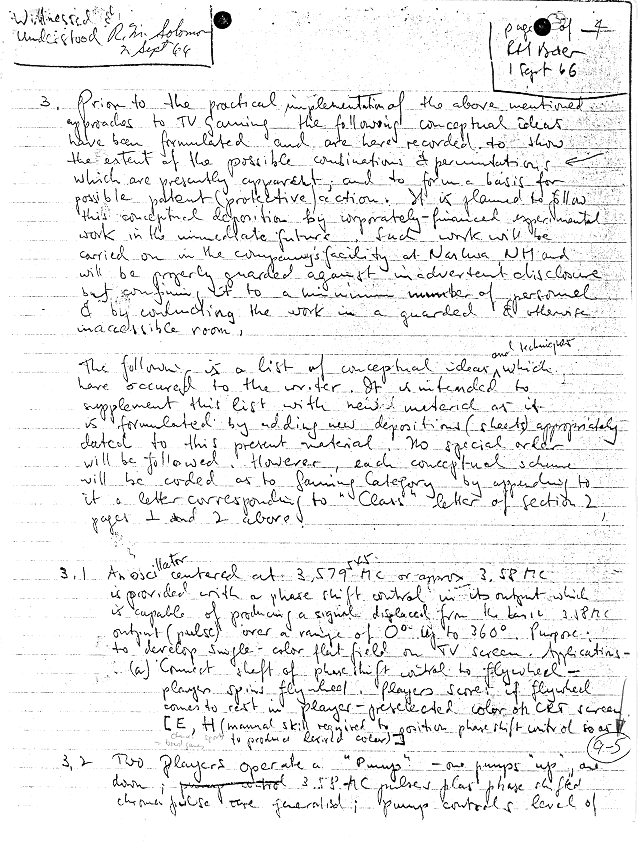 Witnessed &
Understood R. M. Solomon
2 Sept 66
page of 4
RH Baer
1 Sept 66
3. Prior to the practical implementation of the above mentioned
approaches to TV Gaming the following conceptual ideas
have been formulated and are here recorded to show
the extent of the possible combinations & permutations
which are presently apparent, and to form a basis for
possible patent (protective) action. It is planned to follow
this conceptual deposition by corporately-financed experimental
work in the immediate future. Such work will be
carried on in the company's facility at Nashua, NH and
will be properly guarded against inadvertent disclosure
by confining it to a minimum number of personnel
& by conducting the work in a guarded & otherwise
inaccessible room.
The following is a list of conceptual ideas and techniques which
have occured to the writer. It is intended to
supplement this list with new material as it
is formulated by adding new depositions (sheets) appropriately
dated to this present material. No special order
will be followed. However, each conceptual scheme
will be coded as to Gaming Category by appending to
it a letter corresponding to "Class" letter of Section 2,
pages 1 and 2 above.
3.1 An oscillator centered at 3,579 545 MC or approx 3.58 MC
is provided with a phase shift control in its output which
is capable of producing a signal displaced from the basic 3.58 MC
output (pulse) over a range of 0° up to 360°. Purpose:
to develop single-color flat field on TV screen. Applications-
(a) Connect shaft of phase shift control to flywheel -
player spins flywheel. Players scores if flywheel
comes to rest in player-preselected color on CRT screen
[E, H (manual skill required to position phase shift control so as
to produce desired color)]
G-5
3.2 Two players operate a "Pump" - one pumps "up", one
down; 3.58 MC pulses plus phase shifted
chroma pulse are generated; pump controls level of